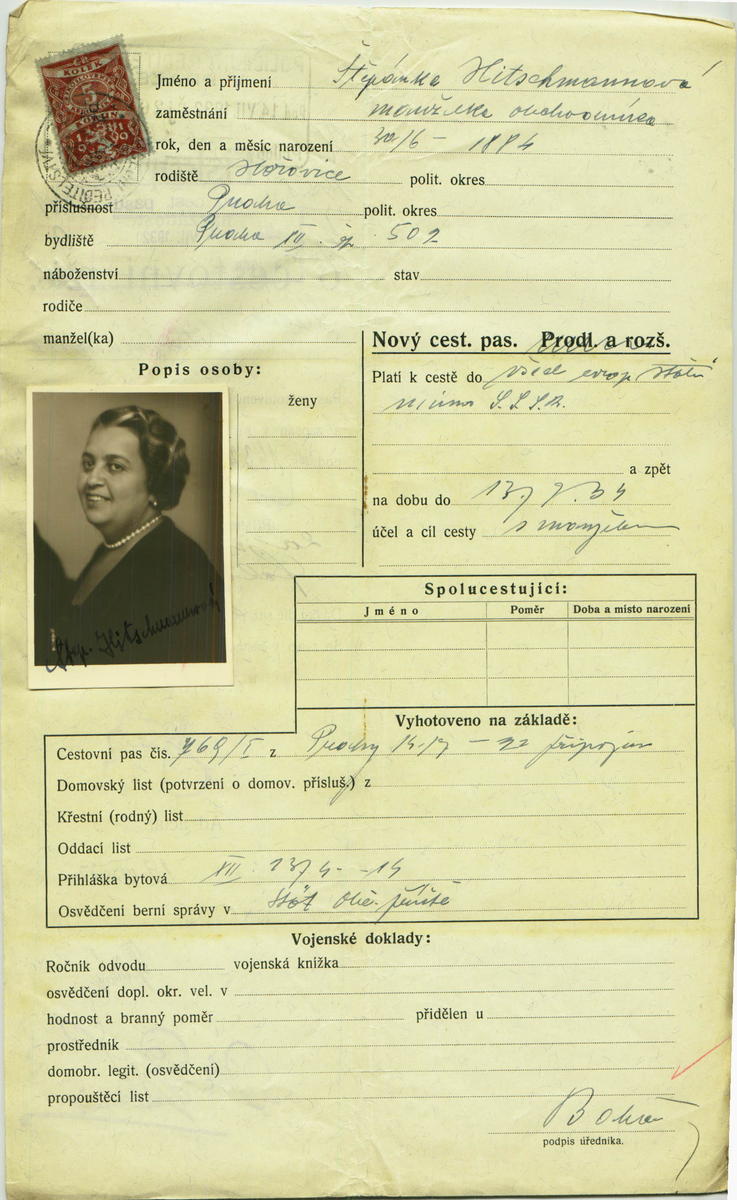 KOLEK
5
Jméno a příjmení Štěpánka Hitschmannová
zaměstnání manželka obchodníka
rok, den a měsíc narození 30/6 – 1884
rodiště Hořovice polit. okres
příslušnost Praha polit. okres
bydliště Praha XII. čp. 502
náboženství stav
rodiče
manžel(ka)
Nový cest. pas. Prodl. a rozš.
Popis osoby:
Platí k cestě do všech evrop. států
ženy
mimo S.S.S.R.
a zpět
na dobu do 13/7.34
účel a cíl cesty s manželem
Štěp. Hitschmannová
Spolucestující:
Jméno Poměr Doba a místo narození
Vyhotoveno na základě:
Cestovní pas čís. 769/I z Prahy
Domovský list (potvrzení o domov. přísluš.) z
Křestní (rodný) list
Oddací list
Přihláška bytová XII.
Osvědčení berní správy v
Vojenské doklady:
Ročník odvodu vojenská knížka
osvědčení dopl. okr. vel. v
hodnost a branný poměr přidělen u
prostředník
domobr. legit. (osvědčení)
propouštěcí list
podpis úředníka.